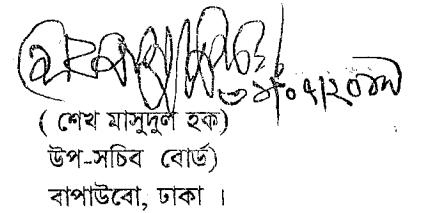 ( শেখ মাসুদুল হক)
উপ-সচিব বোর্ড)
বাপাউবো, ঢাকা ।